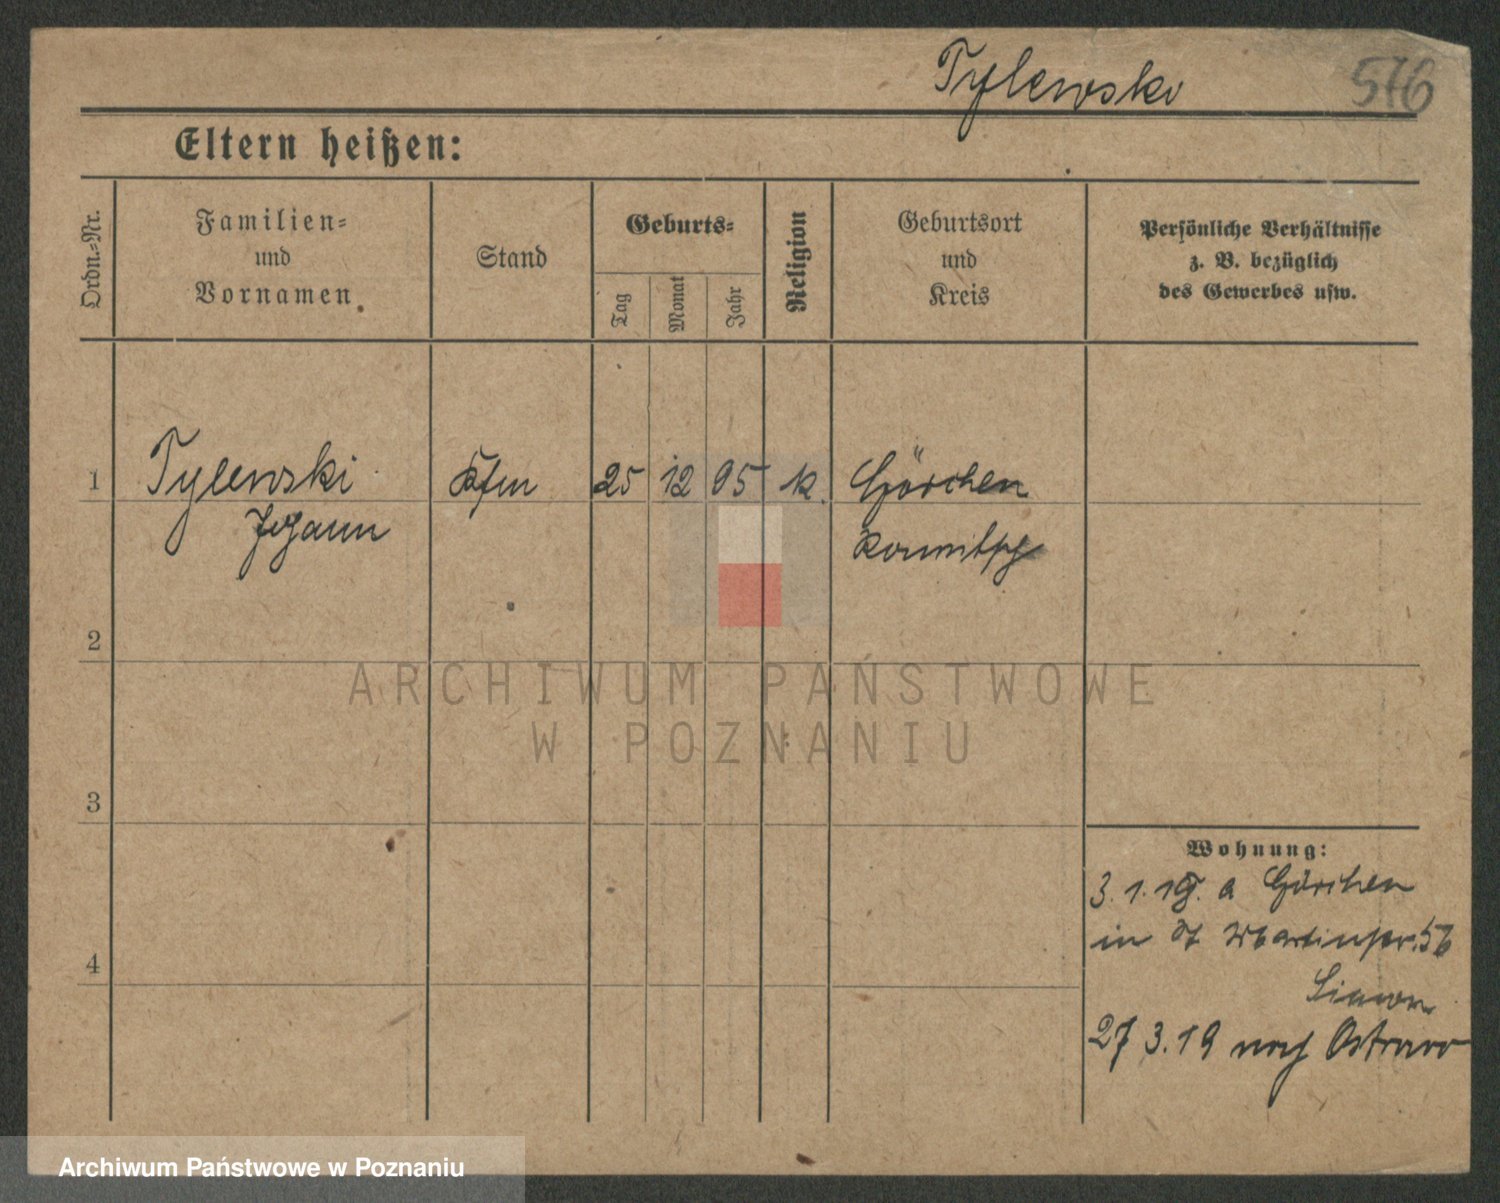 Tylewski
576
Eltern heißen:
Ordn.=Nr.
Familien=
und
Vornamen
Stand
Geburts=
Tag
Monat
Jahr
Religion
Geburtsort
und
Kreis
Persönliche Verhältnisse
z. B. bezüglich
des Gewerbes usw.
1
Tylewski
Johann
Kfm
25
12
95
k.
Görchen
2
3
4
Wohnung:
3.1.19. a Görchen
in St Martinstr. 56
27 3.19 nach Ostrowo
ARCHIWUM PAŃSTWOWE
W POZNANIU
Archiwum Państwowe w Poznaniu